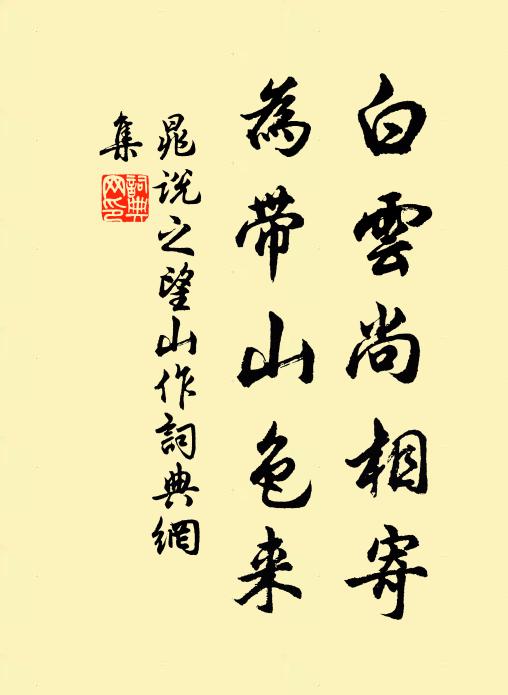 白雲尚相寄
為帶山色来
晁説之望山作詞典網
集
詞典
网印